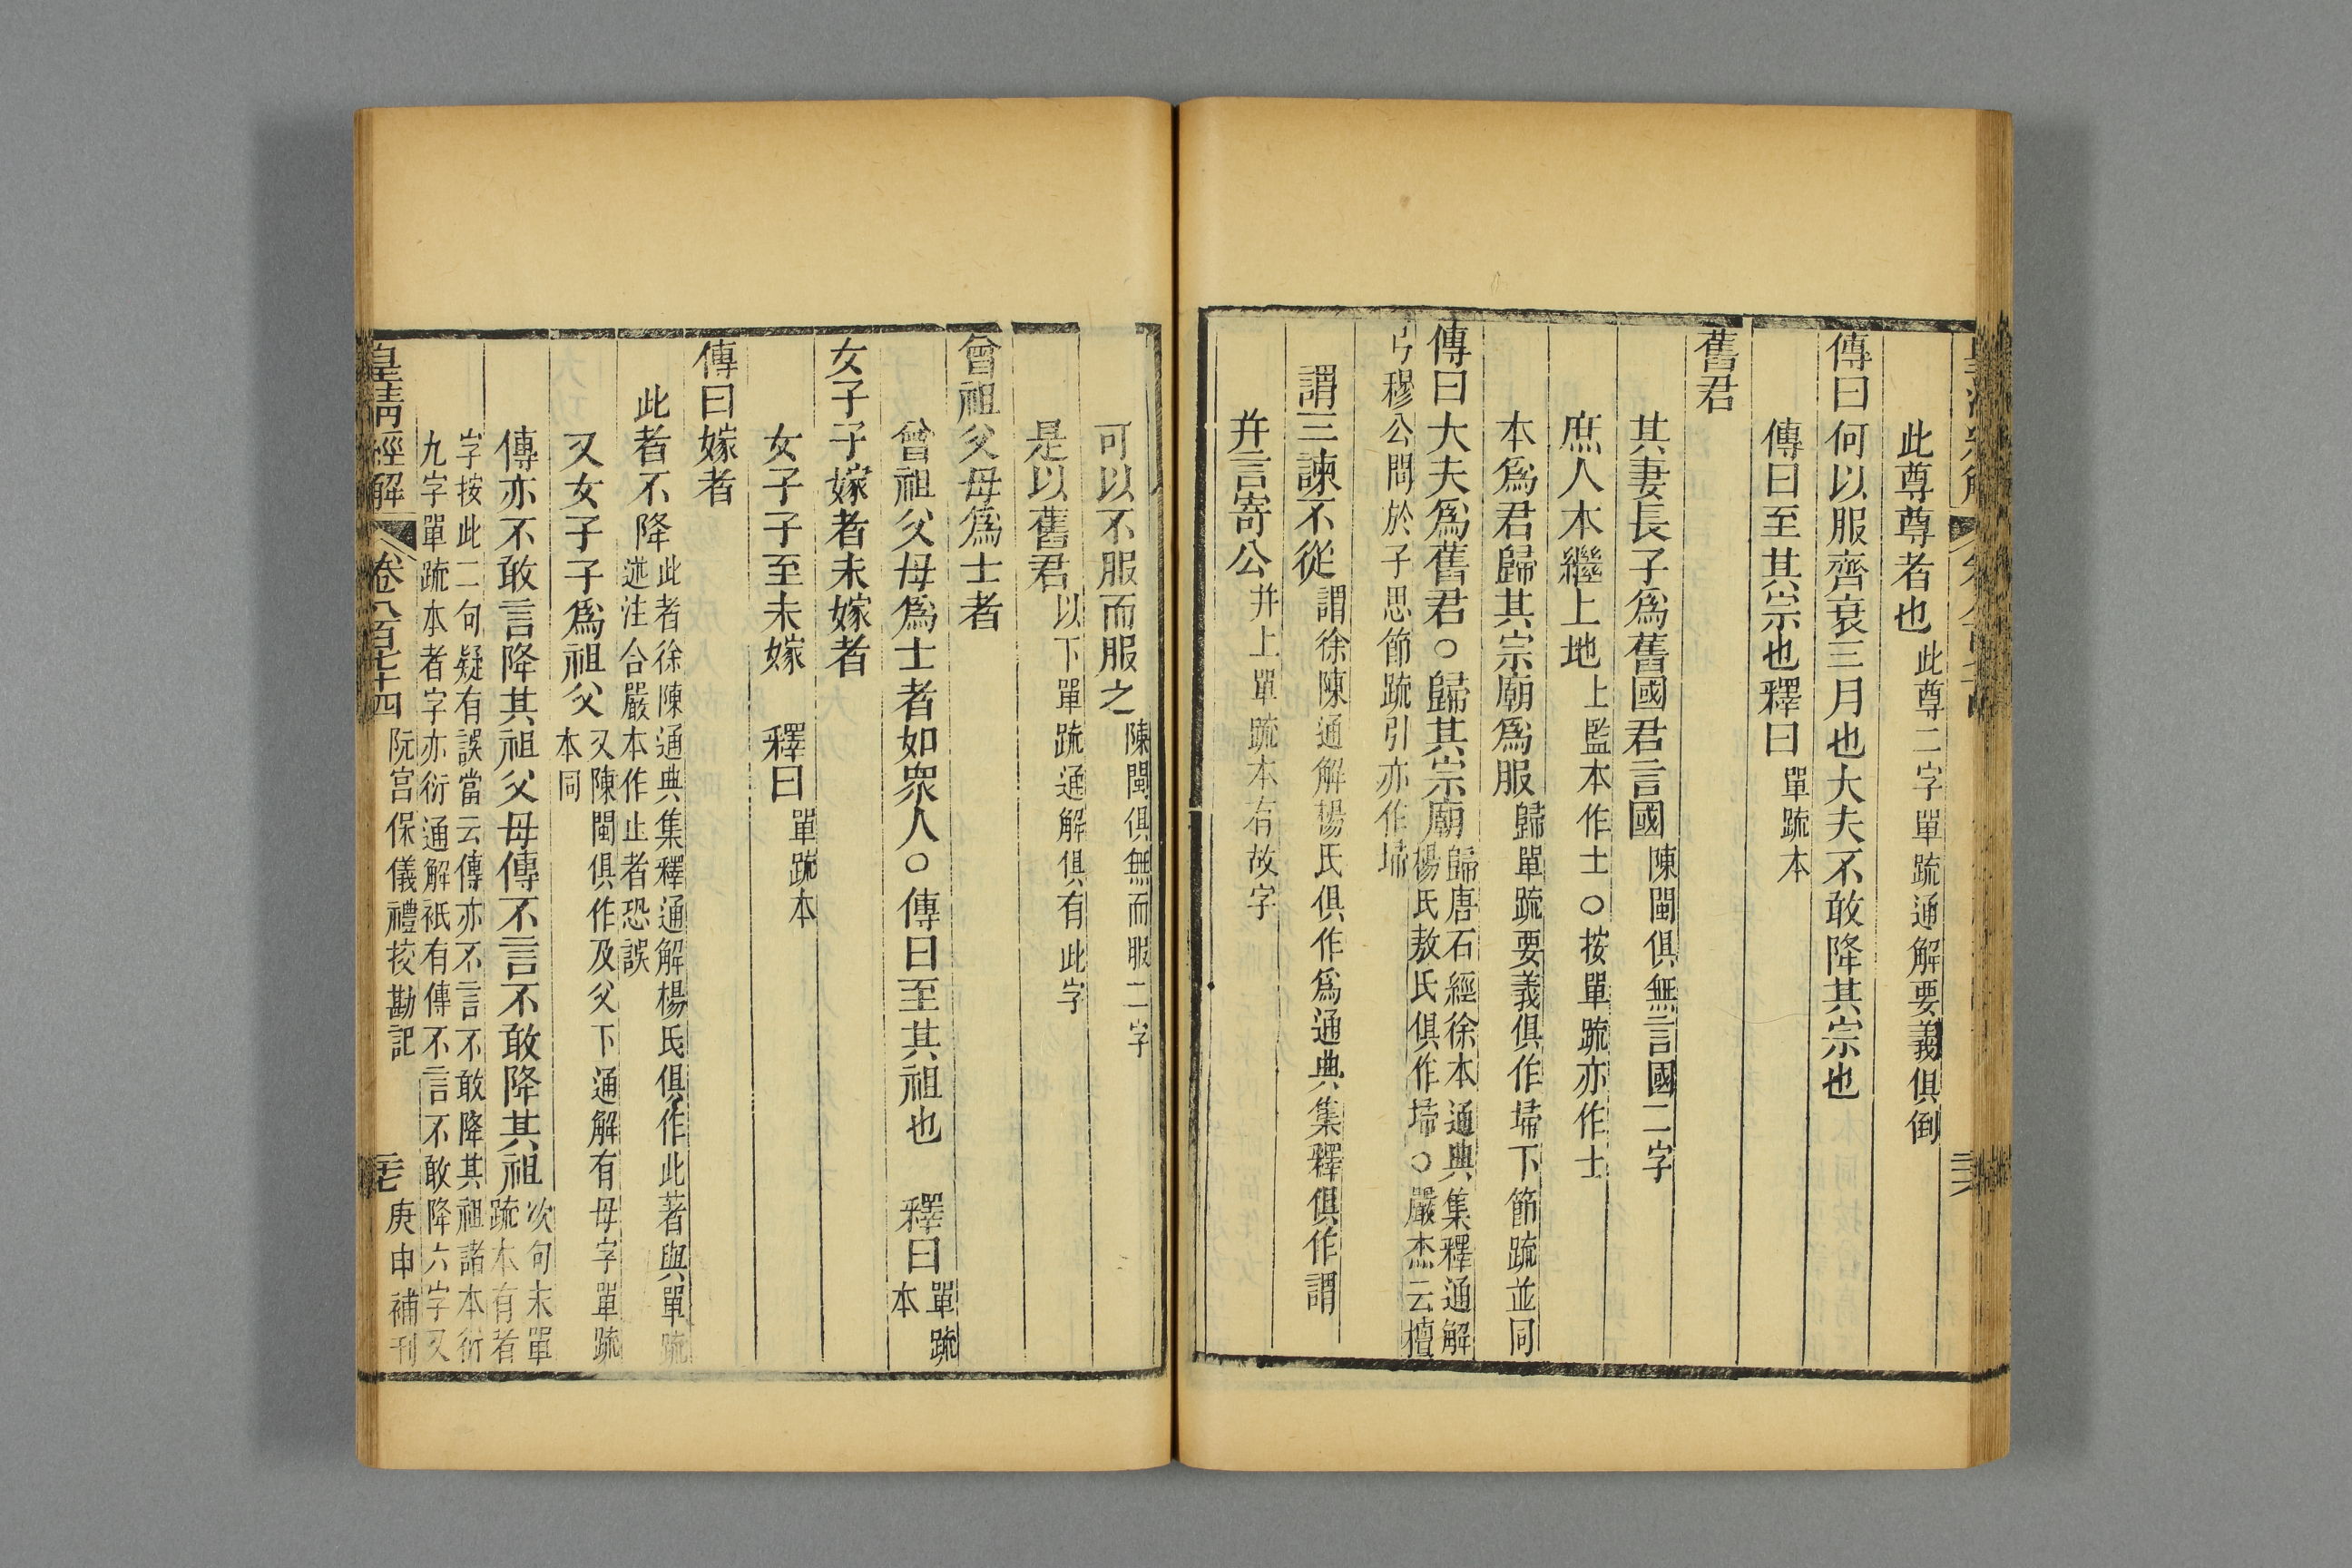 此尊尊者也此尊二字單疏通解要義俱倒
傳曰何以服齊衰三月也大夫不敢降其宗也
傳曰至其宗也釋曰單疏本
舊君
其妻長子爲舊國君言國陳閩俱無言國二字
庶人本繼上地上監本作士○按單疏亦作士
本爲君歸其宗廟爲服歸單疏要義俱作埽下節疏並同
傳曰大夫爲舊君○歸其宗廟歸唐石經徐本通典集釋通解
楊氏敖氏俱作埽○嚴杰云檀
弓穆公問於子思節疏引亦作埽
謂三諫不從謂徐陳通解楊氏俱作爲通典集釋俱作謂
并言寄公并上單疏本有故字
可以不服而服之陳閩俱無而服二字
是以舊君以下單疏通解俱有此字
曾祖父母爲士者
曾祖父母爲士者如眾人○傳曰至其祖也 釋曰單疏
本
女子子嫁者未嫁者
女子子至未嫁 釋曰單疏本
傳曰嫁者
此者不降此者徐陳通典集釋通解楊氏俱作此著與單疏
述注合嚴本作止者恐誤
又女子子爲祖父又陳閩俱作及父下通解有母字單疏
本同
傳亦不敢言降其祖父母傳不言不敢降其祖次句末單
疏本有者
字按此二句疑有誤當云傳亦不言不敢降其祖諸本衍
九字單疏本者字亦衍通解衹有傳不言不敢降六字又
皇清經解 卷八百七十四 阮宮保儀禮挍勘記 庚申補刊